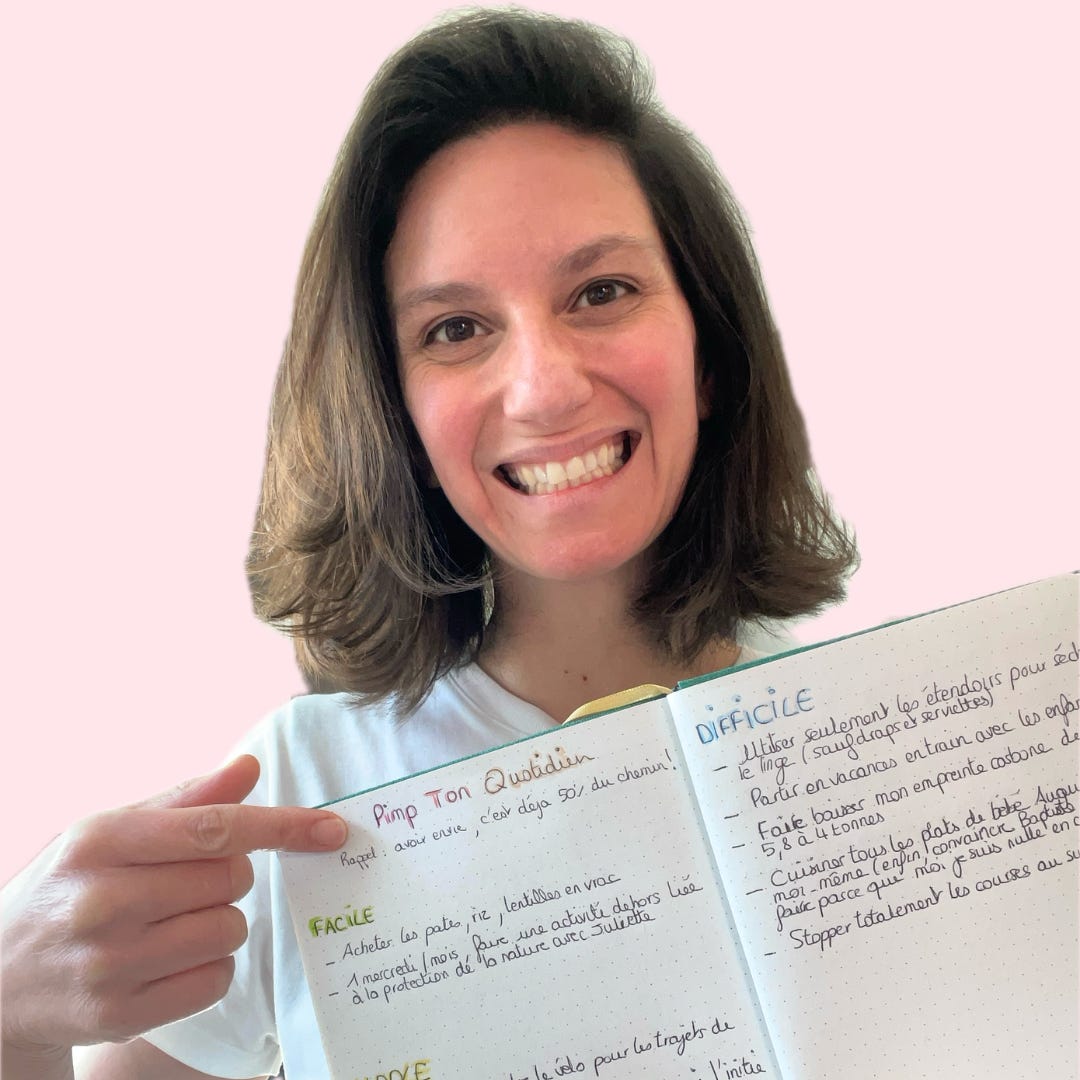 Pimp Ton Quotidien
Rappel : avoir envie, c'est déjà 50% du chemin!
FACILE
- Acheter les pates, riz, lentilles en vrac
- 1 mercredi/mois faire une activité dehors liée
à la protection de la nature avec Juliette
le vélo pour les trajets de
l'initie
DIFFICILE
- Utiliser seulement les étendoirs pour
le linge (sauf draps et serviettes)
- Partir en vacances en train avec les
- Faire baisser mon empreinte carbone de
5,8 à 4 tonnes
- Cuisiner tous les plats de bébé
moi-même (enfin, convaincre
faire parce que moi je suis nulle en
- Stopper totalement les courses au